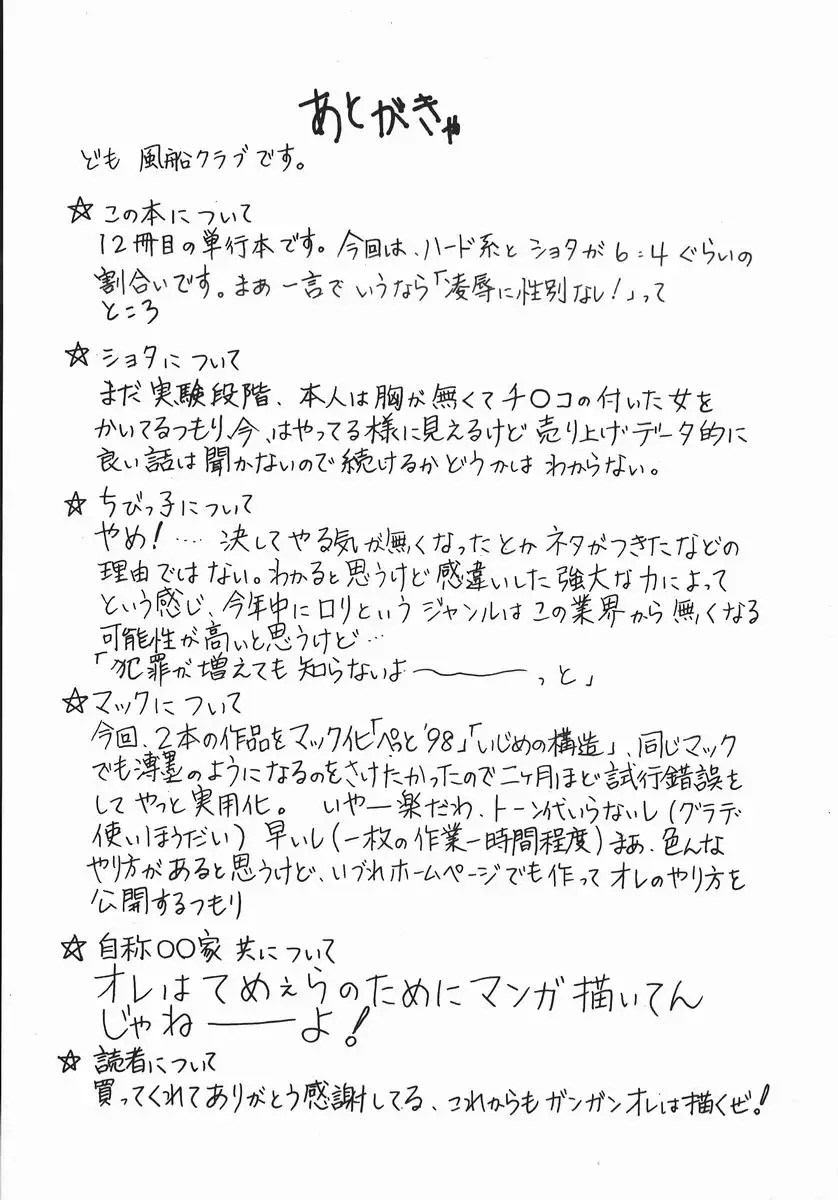 あとがきゃ
ども 風船クラブです。
☆ この本について
12冊目の単行本です。今回は、ハード系とショタが6:4ぐらいの
割合いです。まあ一言でいうなら「凌辱に性別なし!」って
ところ
☆ ショタについて
まだ実験段階、本人は胸が無くてチ○コの付いた女を
かいてるつもり、今、はやってる様に見えるけど売り上げデータ的に
良い話は聞かないので続けるかどうかはわからない。
☆ ちびっ子について
やめ!‥‥ 決してやる気が無くなったとかネタがつきたなどの
理由ではない。わかると思うけど感違いした強大な力によって
という感じ、今年中にロリというジャンルはこの業界から無くなる
可能性が高いと思うけど…
「犯罪が増えても知らないよ〜っと」
☆ マックについて
今回、2本の作品をマック化「ぺっと'98」「いじめの構造」、同じマック
でも薄墨のようになるのをさけたかったので二ヶ月ほど試行錯誤を
してやっと実用化。 いやー楽だわ、トーン代いらないし(グラデ
使いほうだい) 早いし(一枚の作業一時間程度)まあ、色んな
やり方があると思うけど、いづれホームページでも作ってオレのやり方を
公開するつもり
☆ 自称○○家共について
オレはてめぇらのためにマンガ描いてん
じゃねーーよ!
☆ 読者について
買ってくれてありがとう感謝してる、これからもガンガンオレは描くぜ!